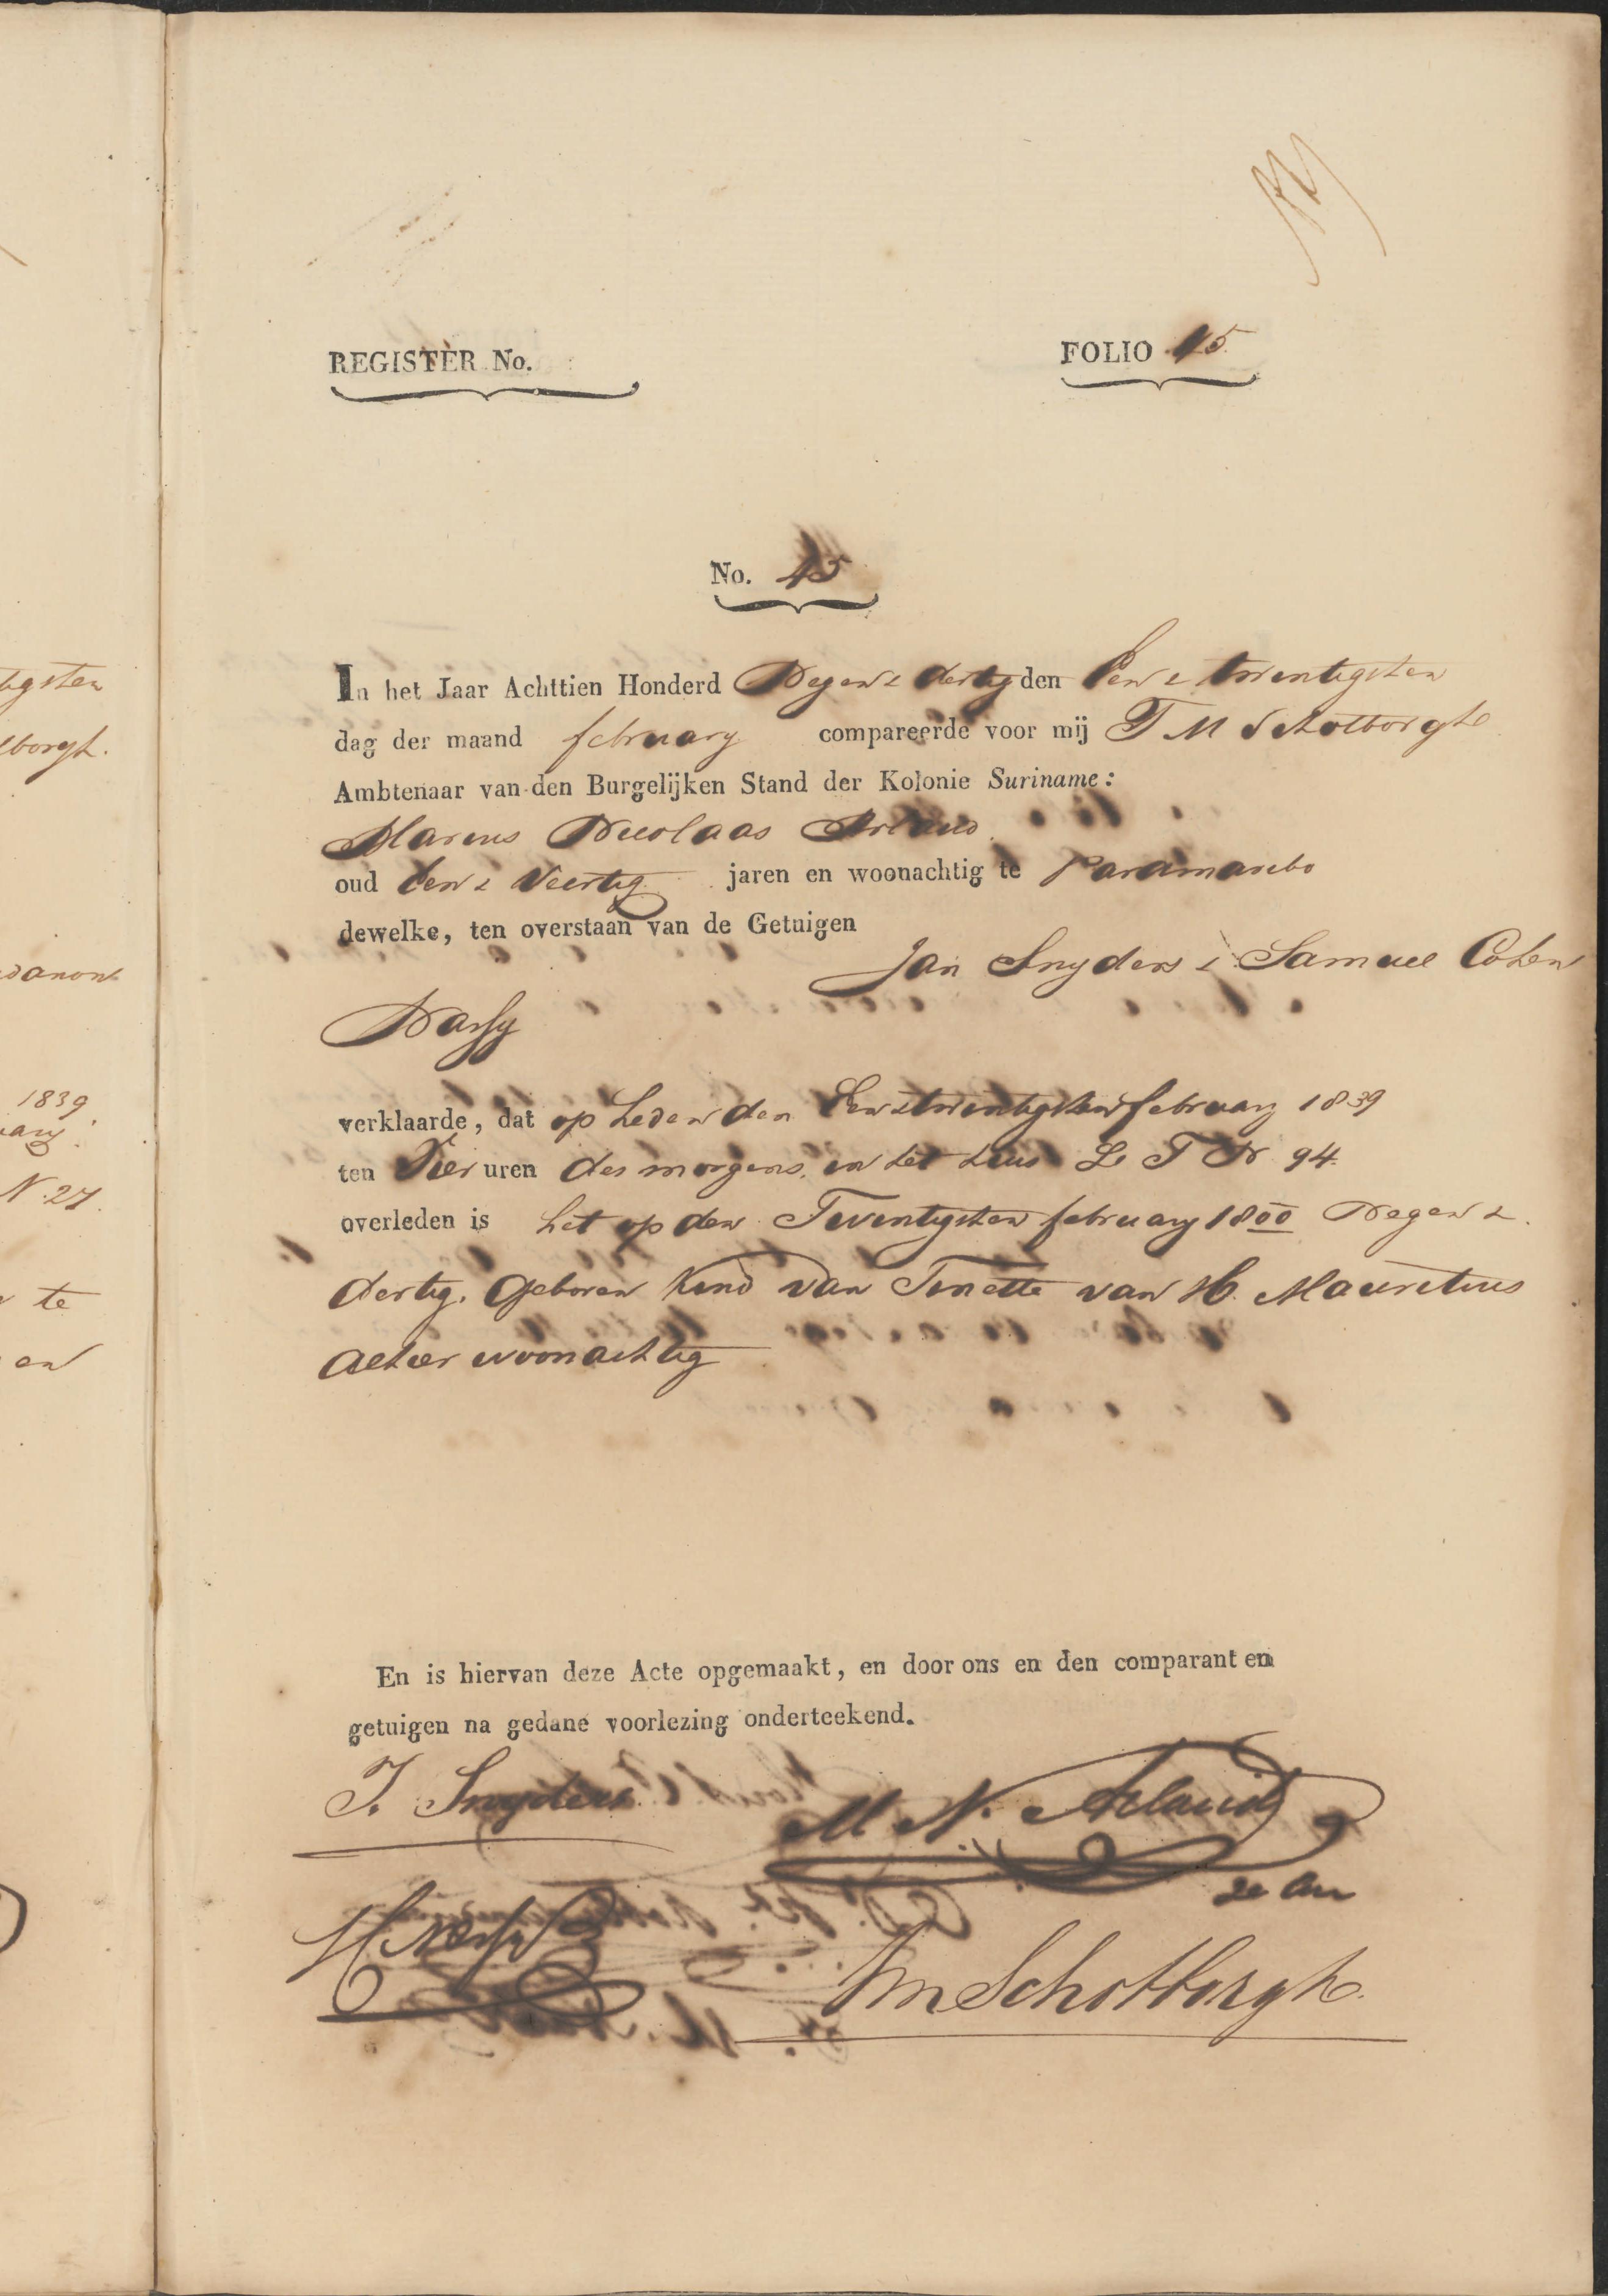 tigsten
lborgh.
1839
N. 27.
te
en
REGISTER No.
FOLIO 45
No. 45
In het Jaar Achttien Honderd Negen & dertig den Een & twintigsten
dag der maand february compareerde voor mij T M Schotborgh
Ambtenaar van den Burgelijken Stand der Kolonie Suriname:
Marius Nicolaas Arlaud
oud Een & Veertig jaren en woonachtig te Paramaribo
dewelke, ten overstaan van de Getuigen
Jan Snyders & Samuel Cohen
Nassy
verklaarde, dat op heden den Een & twintigsten february 1839
ten Vier uren des morgens, in het huis L T N 94.
overleden is het op den Twentigsten february 1800 Negen &
dertig. Geboren Kind van Tenette van H. Mauritius
alhier woonachtig
En is hiervan deze Acte opgemaakt, en door ons en den comparant en
getuigen na gedane voorlezing onderteekend.
J. Snyders
M. N. Arlaud
Nassy
TM Schotborgh.